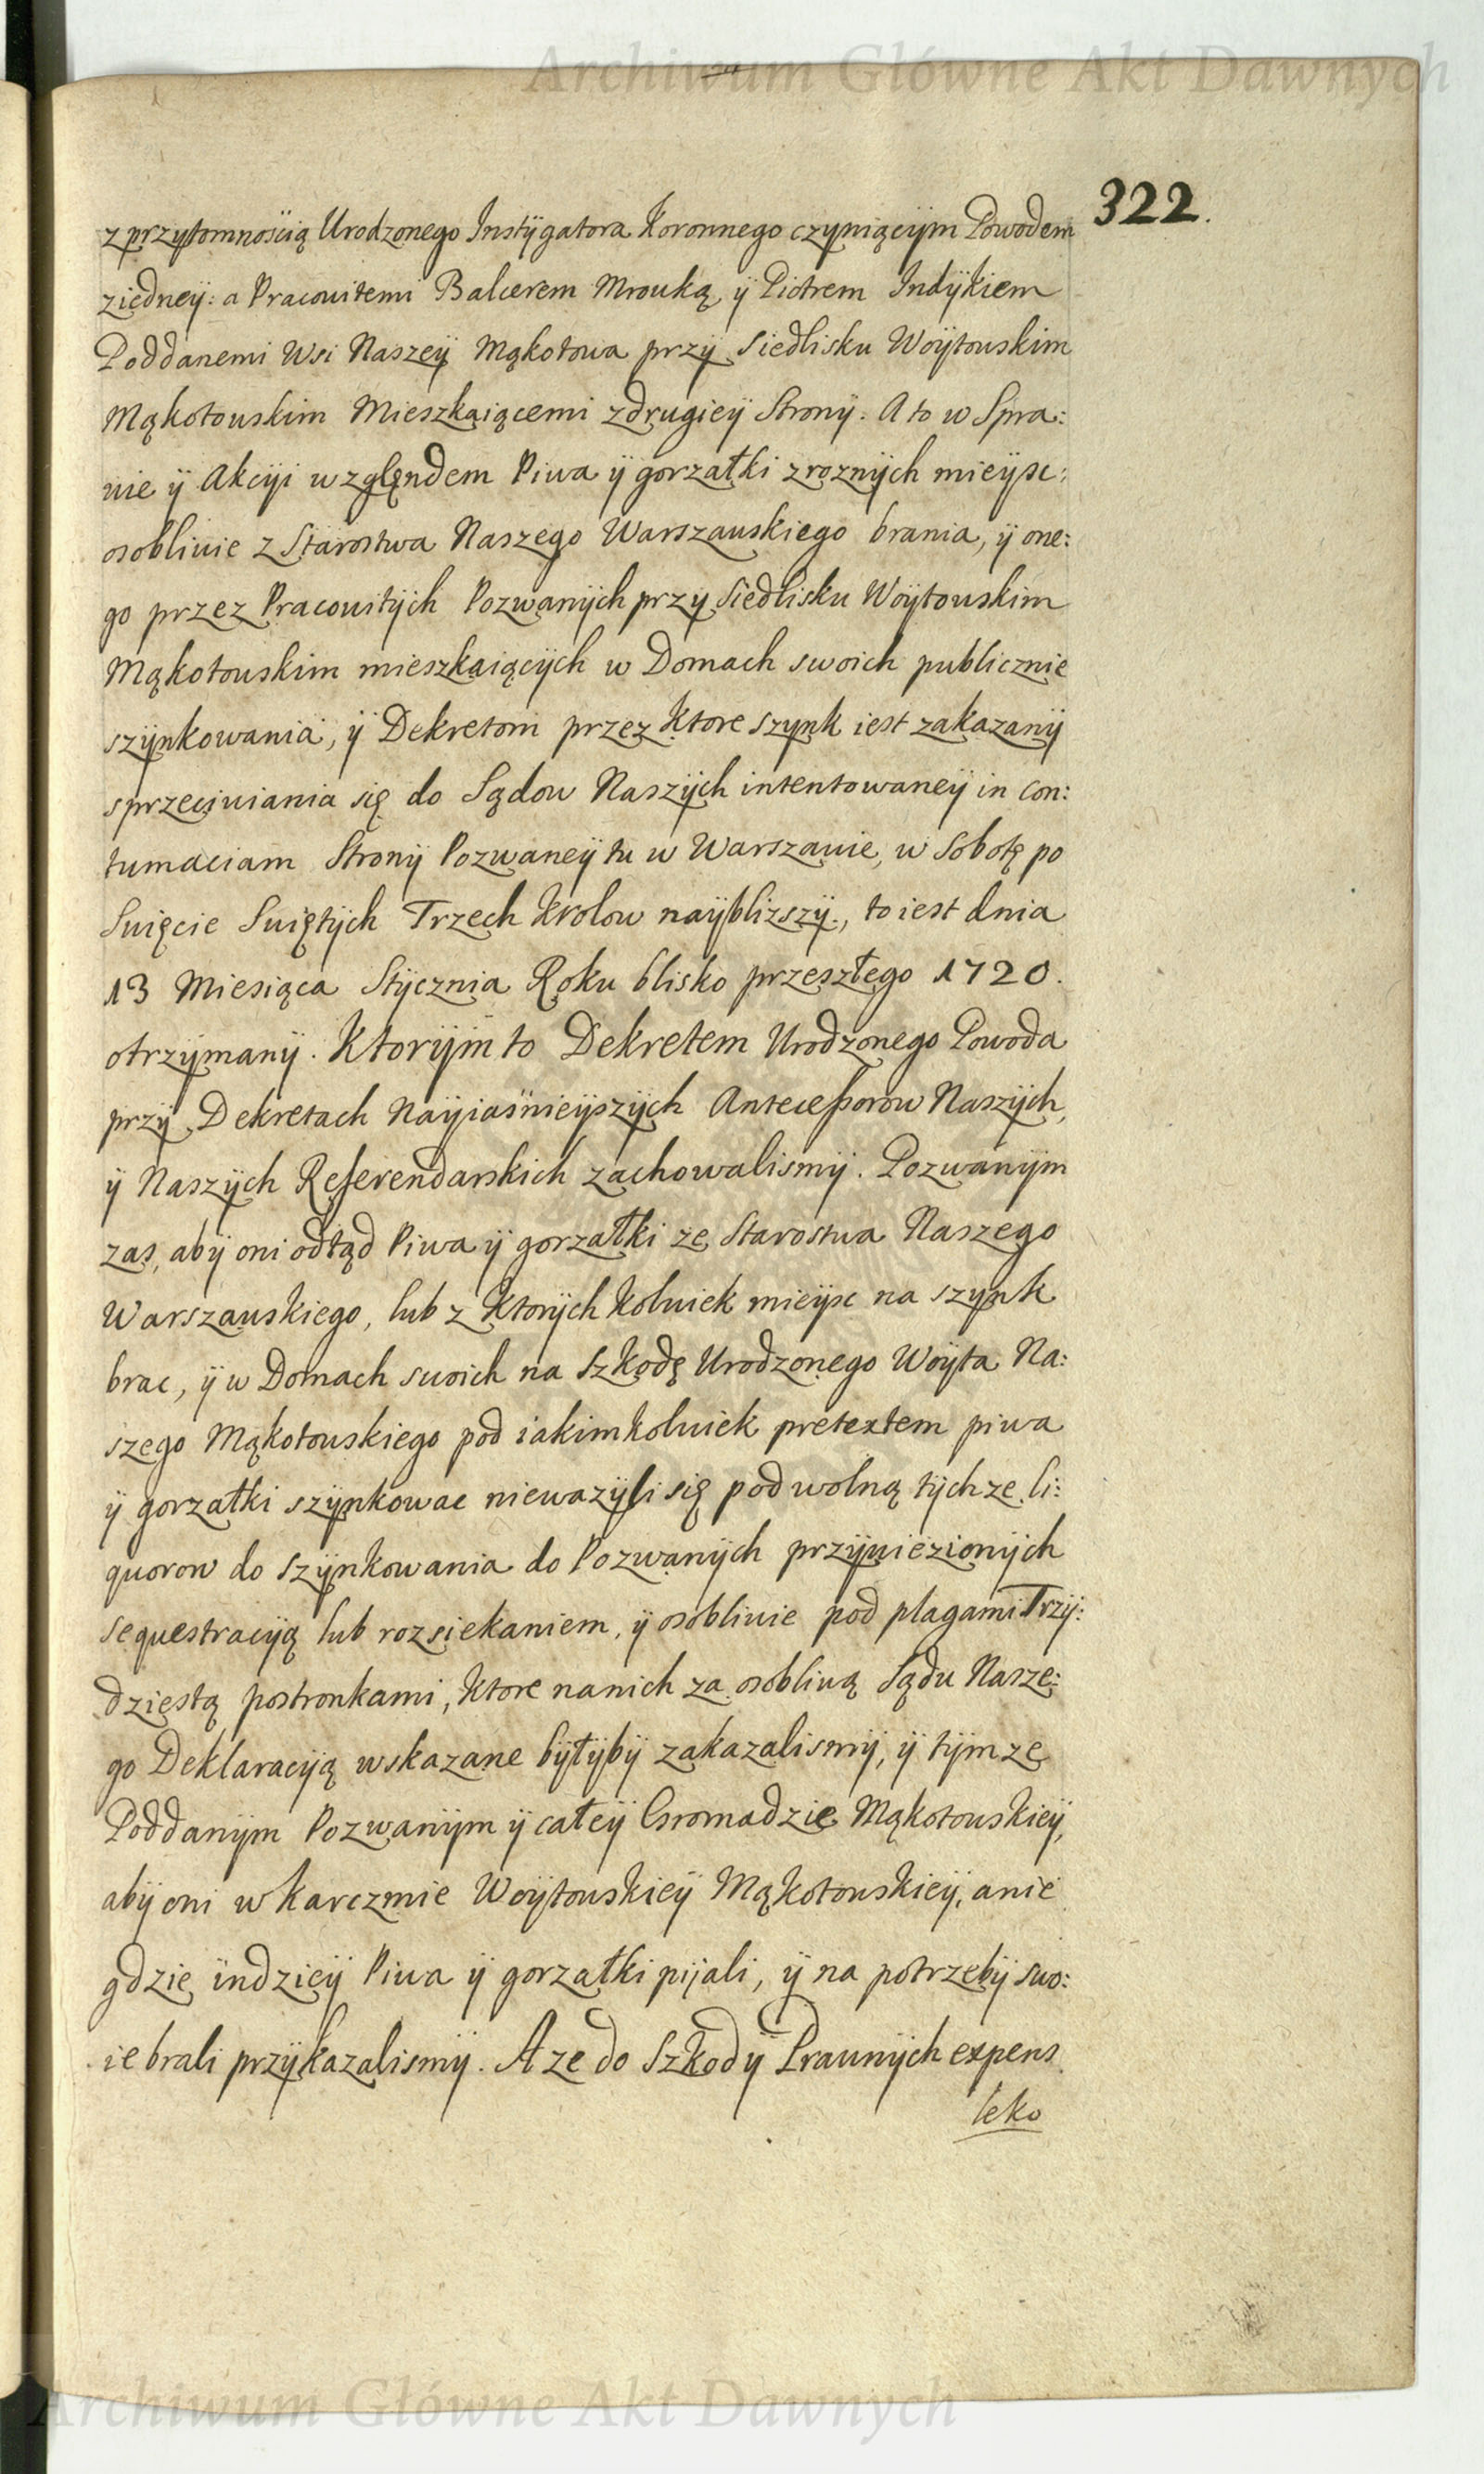 Archiwum Główne Akt Dawnych
322.
z przytomnoscią Urodzonego Instÿgatora Koronnego cżyniącÿm Powodem
ziedneÿ: a Pracowitemi Balcerem Mrowką ÿ Piotrem Indÿkiem
Poddanemi Wsi Naszeÿ Mąkotowa przÿ Siedlisku Woÿtowskim
Mąkotowskim Mieszkaiącemi zdrugieÿ Stronÿ. A to w Spra:
wie ÿ Akcÿi względem Piwa ÿ gorzałki zroznÿch mieÿsc:
osobliwie z Starostwa Naszego Warszawskiego brania, ÿ one:
go przez Pracowitÿch Pozwanÿch przÿ Siedlisku Woÿtowskim
Mąkotowskim mieszkaiącÿch w Domach swoich publicznie
szÿnkowania, ÿ Dekretom przez Ktore szynk iest zakazanÿ
sprzeciwiania się do Sądow Naszÿch intentowaneÿ in con:
tumaciam Stronÿ Pozwaneÿ tu w Warszawie, w Sobotę po
Swięcie Swiętÿch Trzech Krolow naÿblizszÿ., to iest dnia
13 Miesiąca Stÿcznia Roku blisko przeszłego 1720.
otrzÿmanÿ. Ktorÿm to Dekretem Urodzonego Powoda
przÿ Dekretach Naÿiaśnieÿszÿch Antecessorow Naszÿch,
ÿ Naszÿch Referendarskich zachowalismÿ. Pozwanÿm
zas, abÿ oni odtąd Piwa ÿ gorzałki ze Starostwa Naszego
Warszawskiego, lub z Ktorÿch kolwiek mieÿsc na szynk
brac, ÿ w Domach swoich na Szkodę Urodzonego Woÿta Na:
szego Mąkotowskiego pod iakimkolwiek pretextem piwa
ÿ gorzałki szÿnkowac niewazÿli się pod wolną tÿchze li:
quorow do szÿnkowania do Pozwanÿch przÿwiezionÿch
sequestracÿą lub rozsiekaniem, ÿ osobliwie pod plagami Trzÿ:
dziestą postronkami, Ktore nanich za osobliwą Sądu Nasze:
go Deklaracÿą wskazane bÿłÿbÿ zakazalismÿ, ÿ tÿmze
Poddanÿm Pozwanÿm ÿ całeÿ Gromadzie Mąkotowskieÿ,
abÿ oni w Karczmie Woÿtowskieÿ Mąkotowskieÿ, a nie
gdzie indzieÿ Piwa ÿ gorzałki pijali, ÿ na potrzebÿ swo:
ie brali przÿkazalismÿ. A ze do Szkodÿ Prawnÿch expens
leko
Archiwum Główne Akt Dawnych